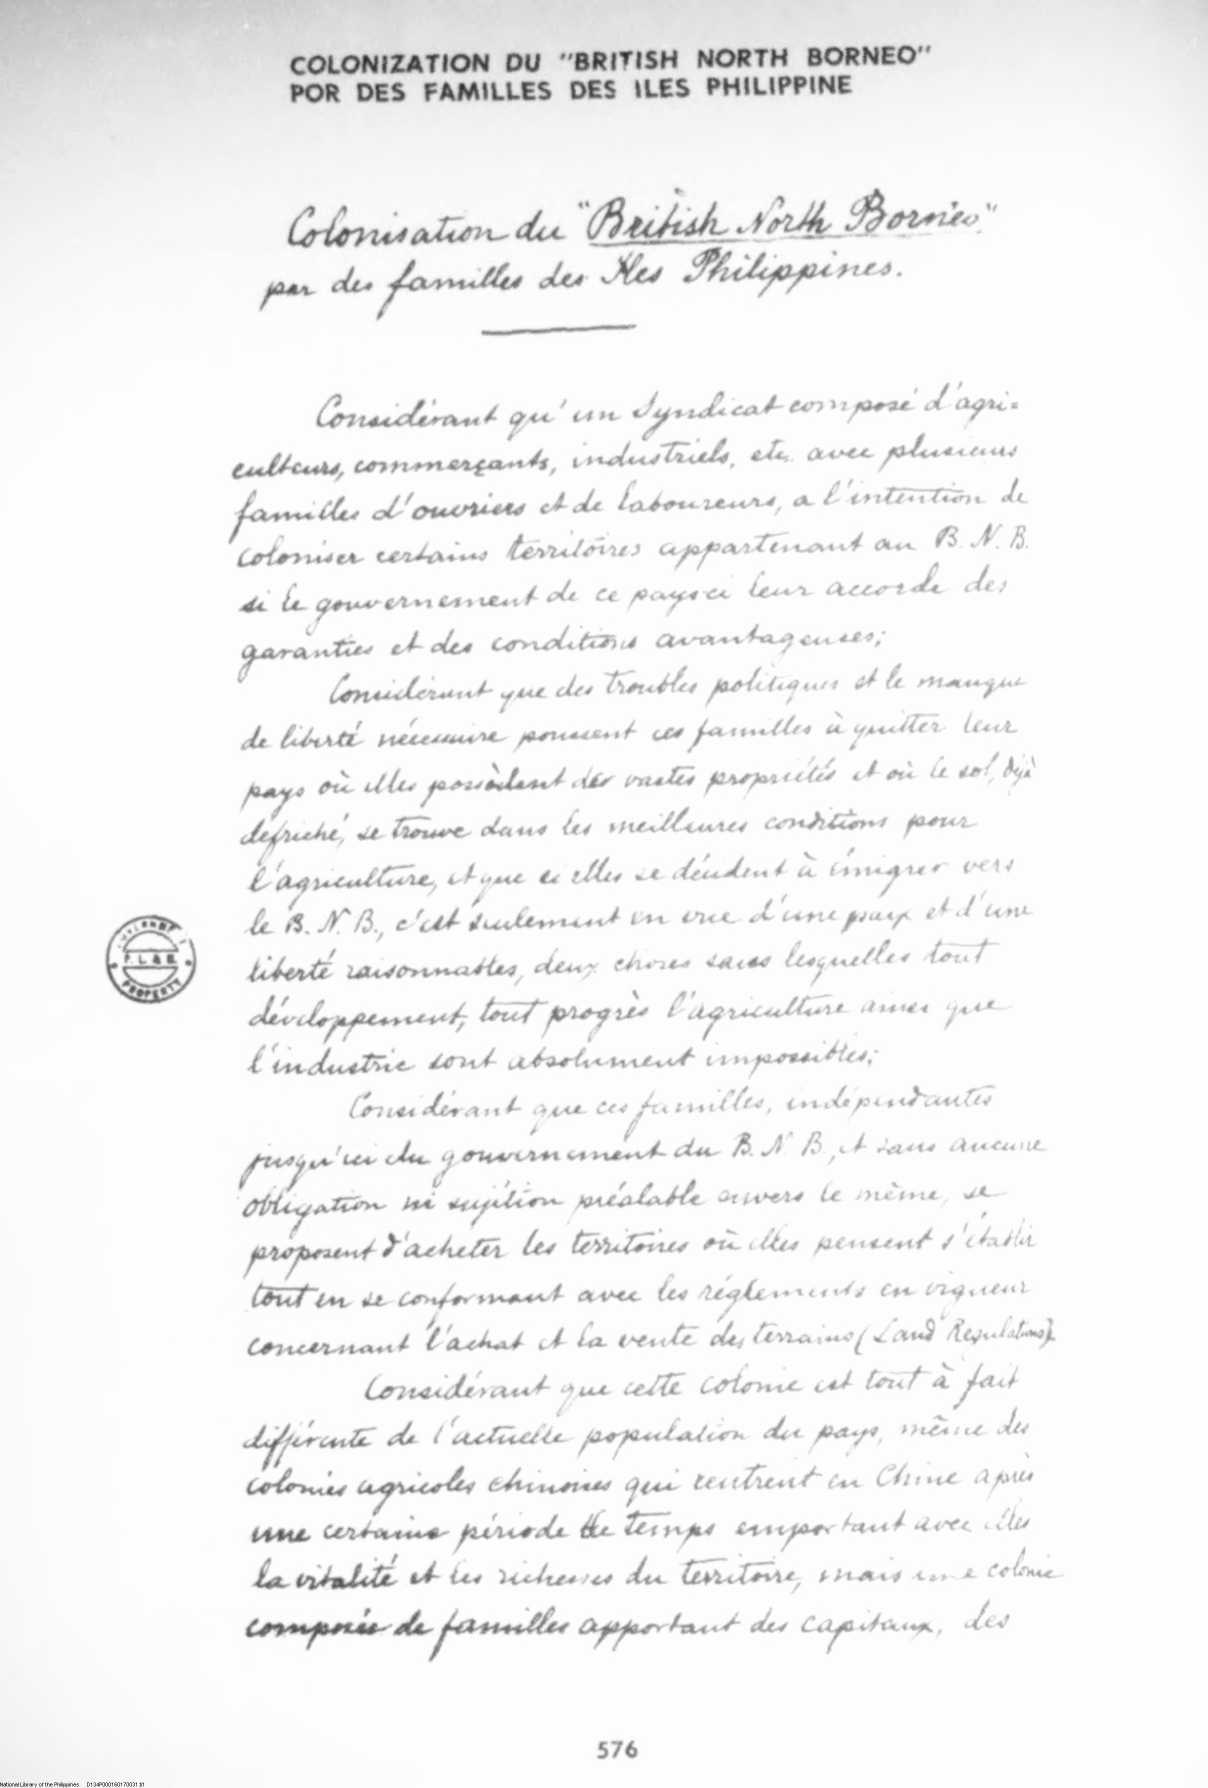 COLONIZATION DU "BRITISH NORTH BORNEO"
POR DES FAMILLES DES ILES PHILIPPINE
Colonisation du "British North Borneo"
par des familles des Iles Philippines.
Considérant qu'un Syndicat composé d'agri-
culteurs, commerçants, industriels, etc. avec plusieurs
familles d'ouvriers et de laboureurs, a l'intention de
coloniser certains territoires appartenant au B. N. B.
si le gouvernement de ce pays-ci leur accorde des
garanties et des conditions avantageuses;
Considérant que des troubles politiques et le manque
de liberté nécessaire poussent ces familles à quitter leur
pays où elles possèdent des vastes propriétés et où le sol, déjà
defriché, se trouve dans les meilleures conditions pour
l'agriculture, et que si elles se décident à émigrer vers
le B. N. B., c'est seulement en vue d'une paix et d'une
liberté raisonnables, deux choses sans lesquelles tout
développement, tout progrès l'agriculture ainsi que
l'industrie sont absolument impossibles;
Considérant que ces familles, indépendantes
jusqu'ici du gouvernement du B. N. B., et sans aucune
obligation ni sujétion préalable envers le même, se
proposent d'acheter les territoires où elles pensent s'établir
tout en se conformant avec les réglements en vigueur
concernant l'achat et la vente des terrains (Land Regulations).
Considérant que cette colonie est tout à fait
différente de l'actuelle population du pays, même des
colonies agricoles chinoises qui rentrent en Chine après
une certaine période de temps emportant avec elles
la vitalité et les richesses du territoire, mais une colonie
composée de familles apportant des capitaux, des
P. L. & B.
PROPERTY
576
National Library of the Philippines